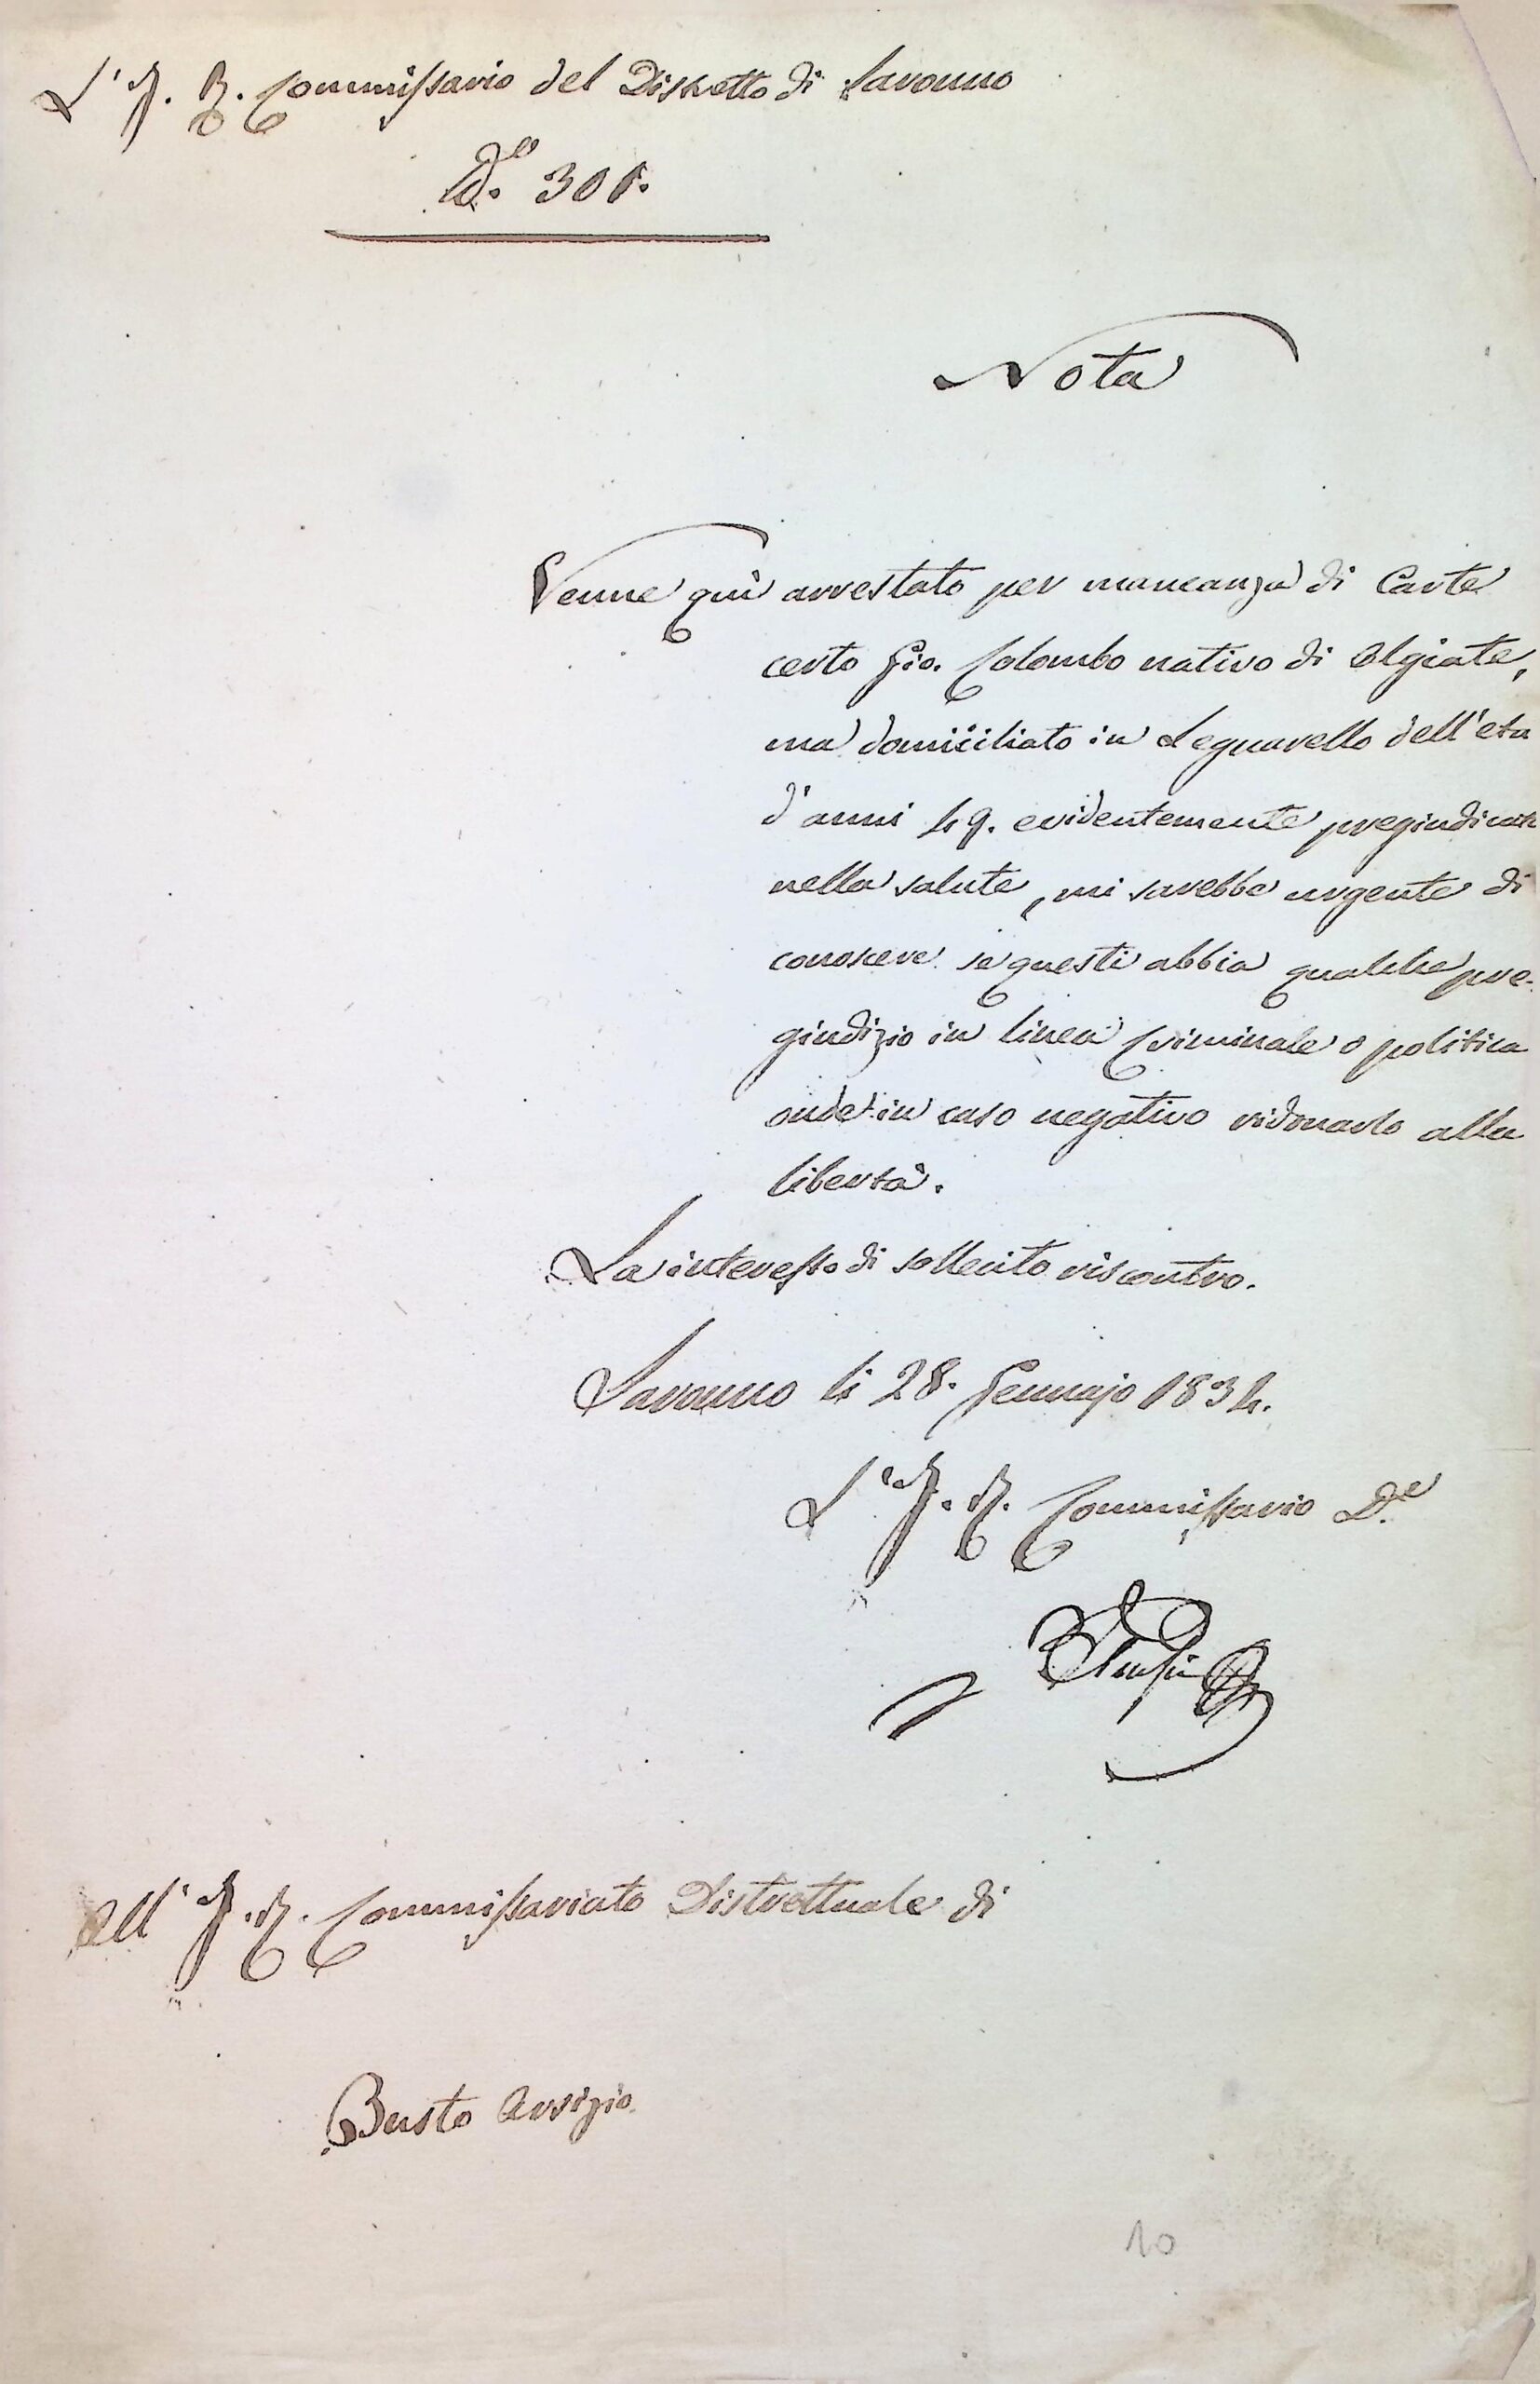 L'I. R. Commissario del Distretto di Saronno
N.° 301.
Nota
Venne quì arrestato per mancanza di Carte
certo Gio. Colombo nativo di Olgiate,
ma domiciliato in Legnarello dell'età
d'anni 49. evidentemente pregiudicato
nella salute, mi sarebbe urgente di
conoscere se questi abbia qualche pre-
giudizio in linea Criminale o politica
onde in caso negativo ridonarlo alla
libertà.
La interesso di sollecito riscontro.
Saronno li 28. Gennajo 1834.
L'I. R. Commissario D.le
All' I. R. Commissariato Distrettuale di
Busto Arsizio
10